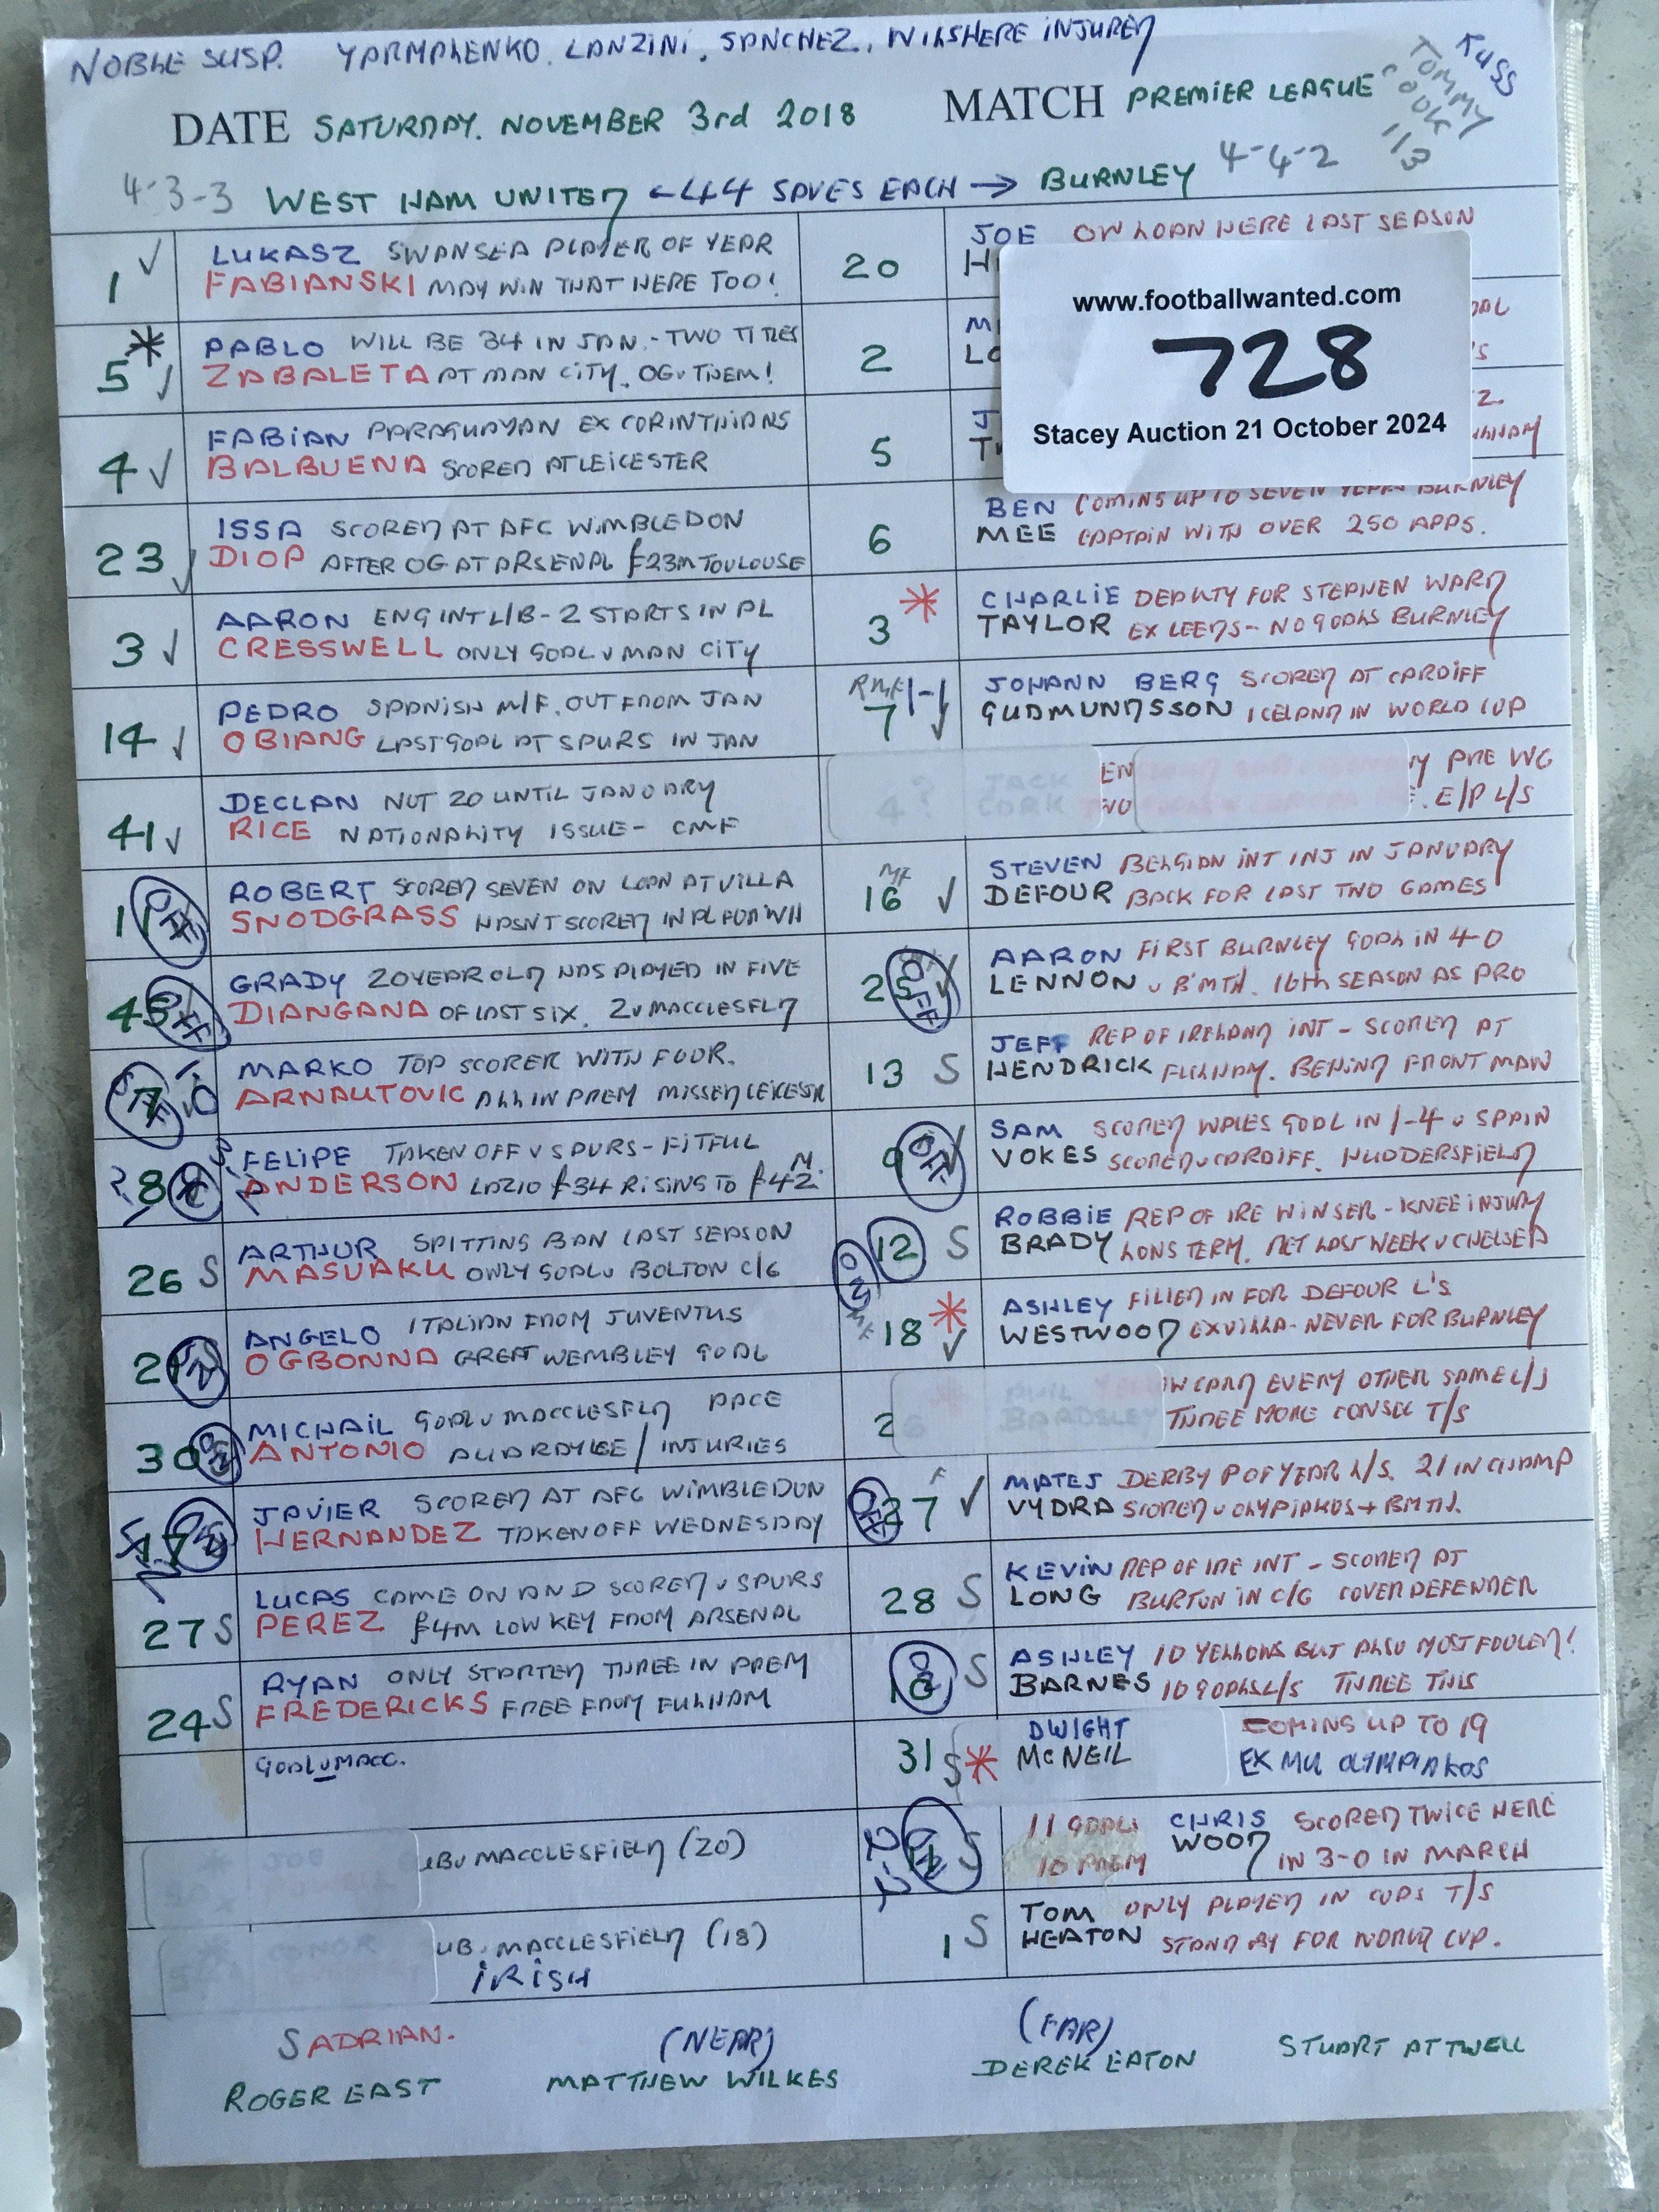 NOBLE SUSP. YARMALENKO. LANZINI. SANCHEZ. WILSHERE INJURED
RUSS
TOMMY
COOK
113
DATE SATURDAY. NOVEMBER 3rd 2018 MATCH PREMIER LEAGUE
4-3-3 WEST HAM UNITED ←44 SAVES EACH→ BURNLEY 4-4-2
1 LUKASZ SWANSEA PLAYER OF YEAR
FABIANSKI MAY WIN THAT HERE TOO!
5 PABLO WILL BE 34 IN JAN.-TWO TITLES
ZABALETA AT MAN CITY. OG v THEM!
4 FABIAN PARAGUAYAN EX CORINTHIANS
BALBUENA SCORED AT LEICESTER
23 ISSA SCORED AT AFC WIMBLEDON
DIOP AFTER OG AT ARSENAL £23M TOULOUSE
3 AARON ENG INT L/B-2 STARTS IN PL
CRESSWELL ONLY GOAL v MAN CITY
14 PEDRO SPANISH M/F. OUT FROM JAN
OBIANG LAST GOAL AT SPURS IN JAN
41 DECLAN NOT 20 UNTIL JANUARY
RICE NATIONALITY ISSUE- CMF
11 OFF ROBERT SCORED SEVEN ON LOAN AT VILLA
SNODGRASS HASN'T SCORED IN PL FOR WH
45 OFF GRADY 20 YEAR OLD HAS PLAYED IN FIVE
DIANGANA OF LAST SIX. 2 v MACCLESFLD
7 OFF 1-0 MARKO TOP SCORER WITH FOUR.
ARNAUTOVIC ALL IN PREM MISSED LEICESTR
8 FELIPE TAKEN OFF v SPURS-FITFUL
ANDERSON LAZIO £34 RISING TO £42M.
26 S ARTHUR SPITTING BAN LAST SEASON
MASUAKU ONLY GOAL v BOLTON C/C
21 ON ANGELO ITALIAN FROM JUVENTUS
OGBONNA GREAT WEMBLEY GOAL
30 ON MICHAIL GOAL v MACCLESFLD PACE
ANTONIO ALLARDYCE/INJURIES
17 ON JAVIER SCORED AT AFC WIMBLEDON
HERNANDEZ TAKEN OFF WEDNESDAY
27 S LUCAS CAME ON AND SCORED v SPURS
PEREZ £4M LOW KEY FROM ARSENAL
24 S RYAN ONLY STARTED THREE IN PREM
FREDERICKS FREE FROM FULHAM
GOAL v MACC.
MACCLESFIELD (20)
UB. MACCLESFIELD (18)
IRISH
20 JOE ON LOAN HERE LAST SEASON
2
5
6 BEN COMING UP TO SEVEN YEARS BURNLEY
MEE CAPTAIN WITH OVER 250 APPS.
3 CHARLIE DEPUTY FOR STEPHEN WARD
TAYLOR EX LEEDS-NO GOALS BURNLEY
RMF 1-1
7 JOHANN BERG SCORED AT CARDIFF
GUDMUNDSSON ICELAND IN WORLD CUP
4? JACK PRE WC
CORK E/P L/S
MF
16 STEVEN BELGIAN INT INJ IN JANUARY
DEFOUR BACK FOR LAST TWO GAMES
25 OFF AARON FIRST BURNLEY GOAL IN 4-0
LENNON v B'MTH. 16th SEASON AS PRO
13 S JEFF REP OF IRELAND INT - SCORED AT
HENDRICK FULHAM. BEHIND FRONT MAN
9 OFF SAM SCORED WALES GOAL IN 1-4 v SPAIN
VOKES SCORED v CARDIFF. HUDDERSFIELD
12 S ON ROBBIE REP OF IRE WINGER-KNEE INJURY
BRADY LONG TERM. RET LAST WEEK v CHELSEA
MF 18 ASHLEY FILLED IN FOR DEFOUR L'S
WESTWOOD EX VILLA-NEVER FOR BURNLEY
26 PHIL CARD EVERY OTHER GAME L/S
BARDSLEY THREE MORE CONSEC T/S
F
27 OFF MATEJ DERBY P OF YEAR L/S. 21 IN CHAMP
VYDRA SCORED v OLYMPIAKOS + BMTH.
28 S KEVIN REP OF IRE INT - SCORED AT
LONG BURTON IN C/C COVER DEFENDER
10 S ASHLEY 10 YELLOWS BUT ALSO MOST FOULED!
BARNES 10 GOALS L/S THREE THIS
31 S DWIGHT COMING UP TO 19
McNEIL EX MU OLYMPIAKOS
11 S 2-2 11 GOALS CHRIS SCORED TWICE HERE
10 PREM WOOD IN 3-0 IN MARCH
1 S TOM ONLY PLAYED IN CUPS T/S
HEATON STAND BY FOR WORLD CUP.
www.footballwanted.com
728
Stacey Auction 21 October 2024
S ADRIAN. (NEAR) (FAR)
ROGER EAST MATTHEW WILKES DEREK EATON STUART ATTWELL